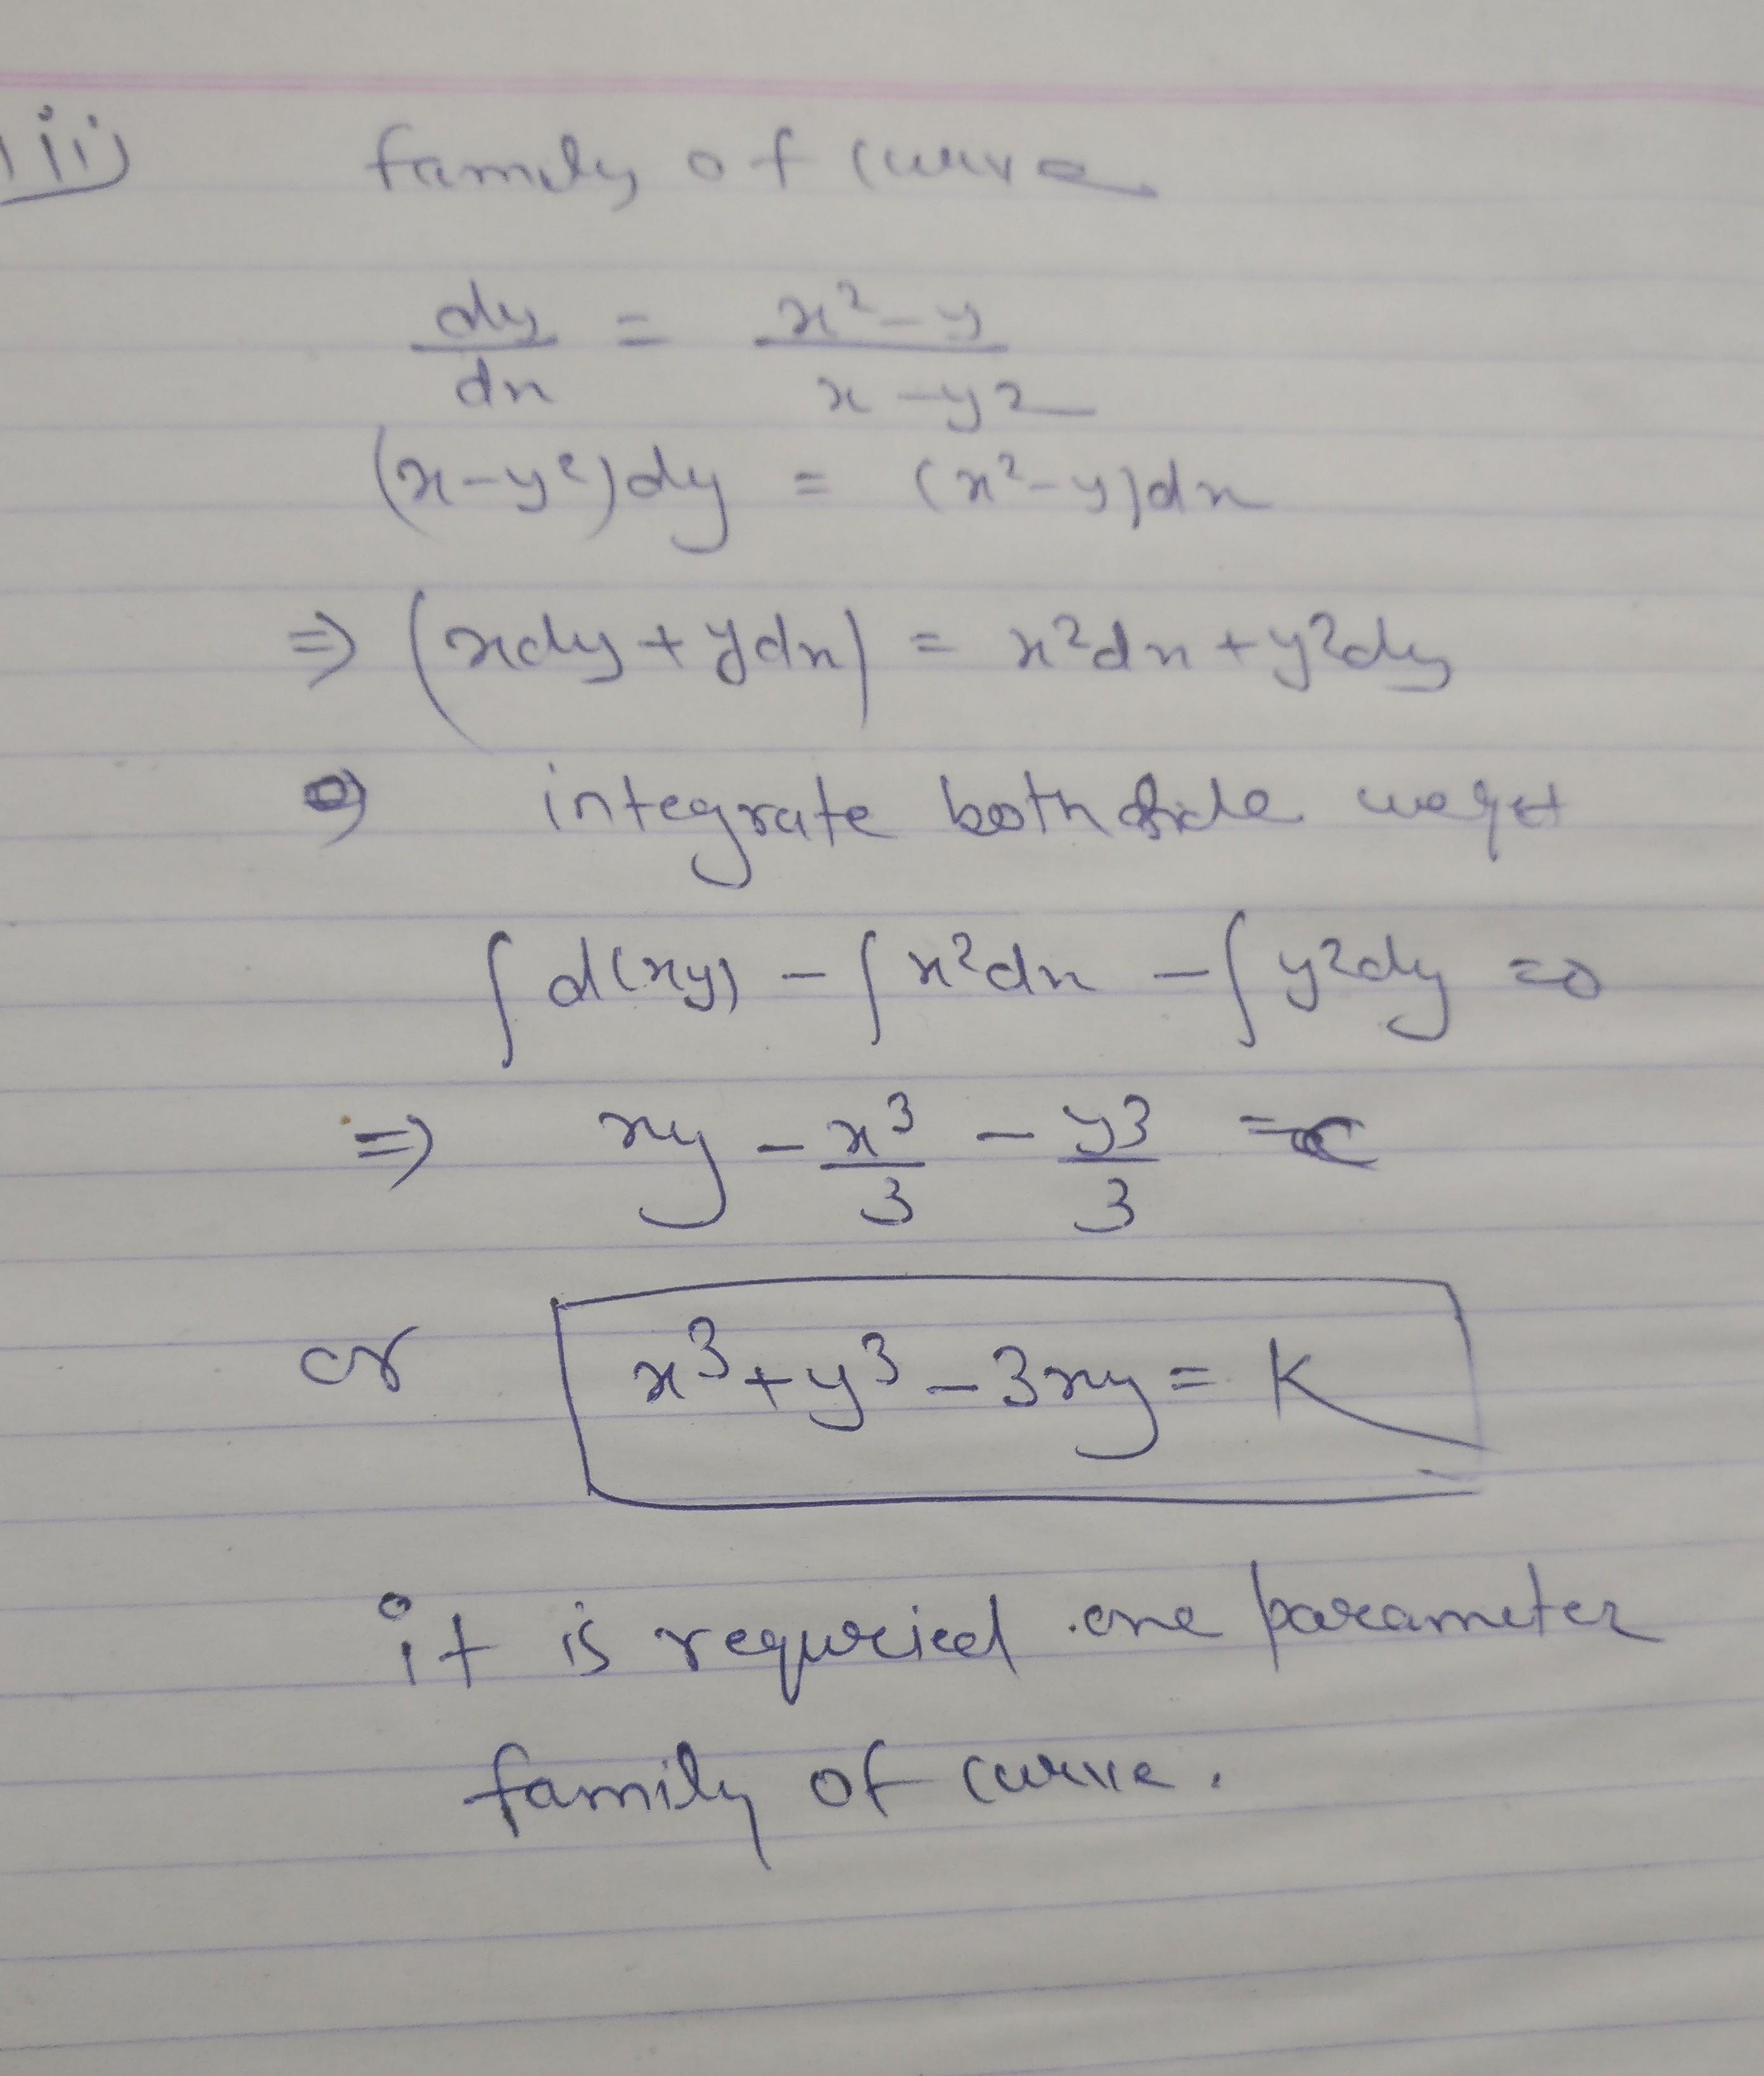 iii)
family of curve
dy/dx = x²-y / x-y²
(x-y²)dy = (x²-y)dx
⇒ (xdy + ydx) = x²dx + y²dy
integrate both side we get
∫d(xy) - ∫x²dx - ∫y²dy = 0
⇒ xy - x³/3 - y³/3 = c
or x³+y³-3xy = K
it is requried one parameter
family of curve.